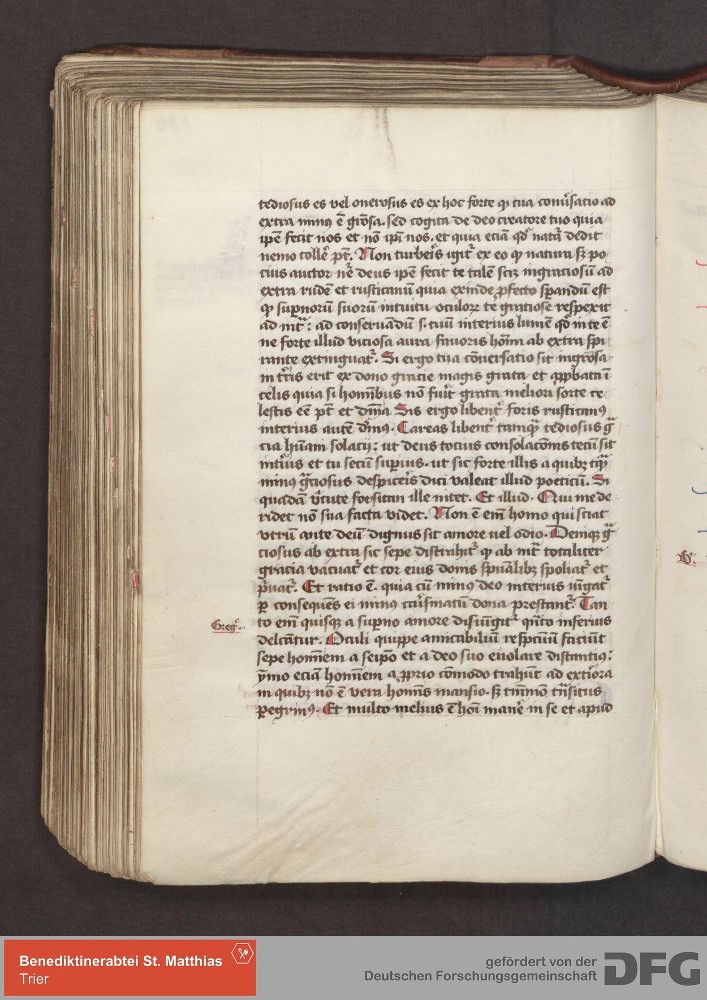 tediosus es vel onerosus es ex hoc forte q̛ tua conũsatio ad
extra minꝰ ẽ grõsa. sed cogita de deo creatore tuo quia
ipẽ fecit nos et nõ ip̃i nos. et quia eciã qd̛ natᷓ dedit
nemo tollẽ pt̃. Non turbeĩs igit᷑ ex eo q̛ natura sꝫ po
cius auctor nẽ deus ipẽ fecit te talẽ scꝫ ingraciosũ ad
extra rudẽ et rusticanũ quia exinde ꝓfecto sperandũ est
q̛ supnorũ suorũ intuitu oculoꝝ te graciose respexit
ad int᷑: ad conseruadũ s. tuũ interius lumẽ qd̛ in te ẽ
ne forte illud viciosa aura fauoris hoĩm ab extra spi
rante extinguat᷑. Si ergo tua cõuersatio sit ingrosa
in tr̃is erit ex dono gracie magis grata et apꝓbata ĩ
celis quia si hominibus nõ fuit᷑ grata meliori sorte ce
lestis eẽ pt̃ et dm̃a Sis ergo libent᷑ foris rusticanꝰ
interius autẽ dm̃ꝰ. Careas libent᷑ tamqᷓ tediosus gᷓ
cia hũam solacij: ut deus tocius consolacõnis tecũ sit
int̃ius et tu secũ supius. ut sic forte illis a quibꝫ tqᷓ
minꝰ gᷓciosus despiceĩs dici valeat illud poeticũ. Si
quadã v̛tute forsitan ille nitet. Et illud. Qui me de
ridet non sua facta videt. Non ẽ em̃ homo qui sciat
vtrũ ante deũ dignus sit amore uel odio. Deniqꝫ gᷓ
ciosus ab extra sic sepe distrahit᷑ q̛ ab int᷑ totaliter
gracia vacuat᷑ et cor eius donis sp̃ualibꝫ spoliat᷑ et
p̛uat᷑. Et ratio ẽ. quia cũ minꝰ deo interius iũgat᷑
ꝑ consequẽs ei minus carismatũ dona prestant᷑. Tan
Greg᷑.
to em̃ quisqꝫ a supno amore disiũgit᷑ qñto inferius
delcãtur. Oculi quippe amicabiliũ respcuũ faciũt
sepe hominem a seipõ et a deo suo euolare distantiꝰ:
ymo eciã hominem a ꝓprio cõmodo trahũt ad ext̃iora
in quibꝫ nõ ẽ vera hominis mansio. sꝫ tm̃mõ tñsitus
ꝑegrinꝰ. Et multo melius ẽ hoĩ manẽ in se et apud
Benediktinerabtei St. Matthias
Trier
gefördert von der
Deutschen Forschungsgemeinschaft
DFG